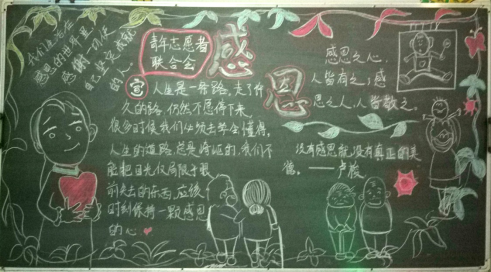 我们生活在
感恩的世界里
感谢一切使
自己坚定成就
的人
青年志愿者
联合会
感
恩
宣
人生是一条路,走了许
久的路仍然不愿停下来,
很多时候我们必须去学会懂得,
人生的道路总是崎岖的,我们不
能把目光仅局限于眼
前失去的东西,应该
时刻保持一颗感恩
的心
感恩之心,
人皆有之;感
恩之人,人皆敬之。
没有感恩就没有真正的美
德。——卢梭